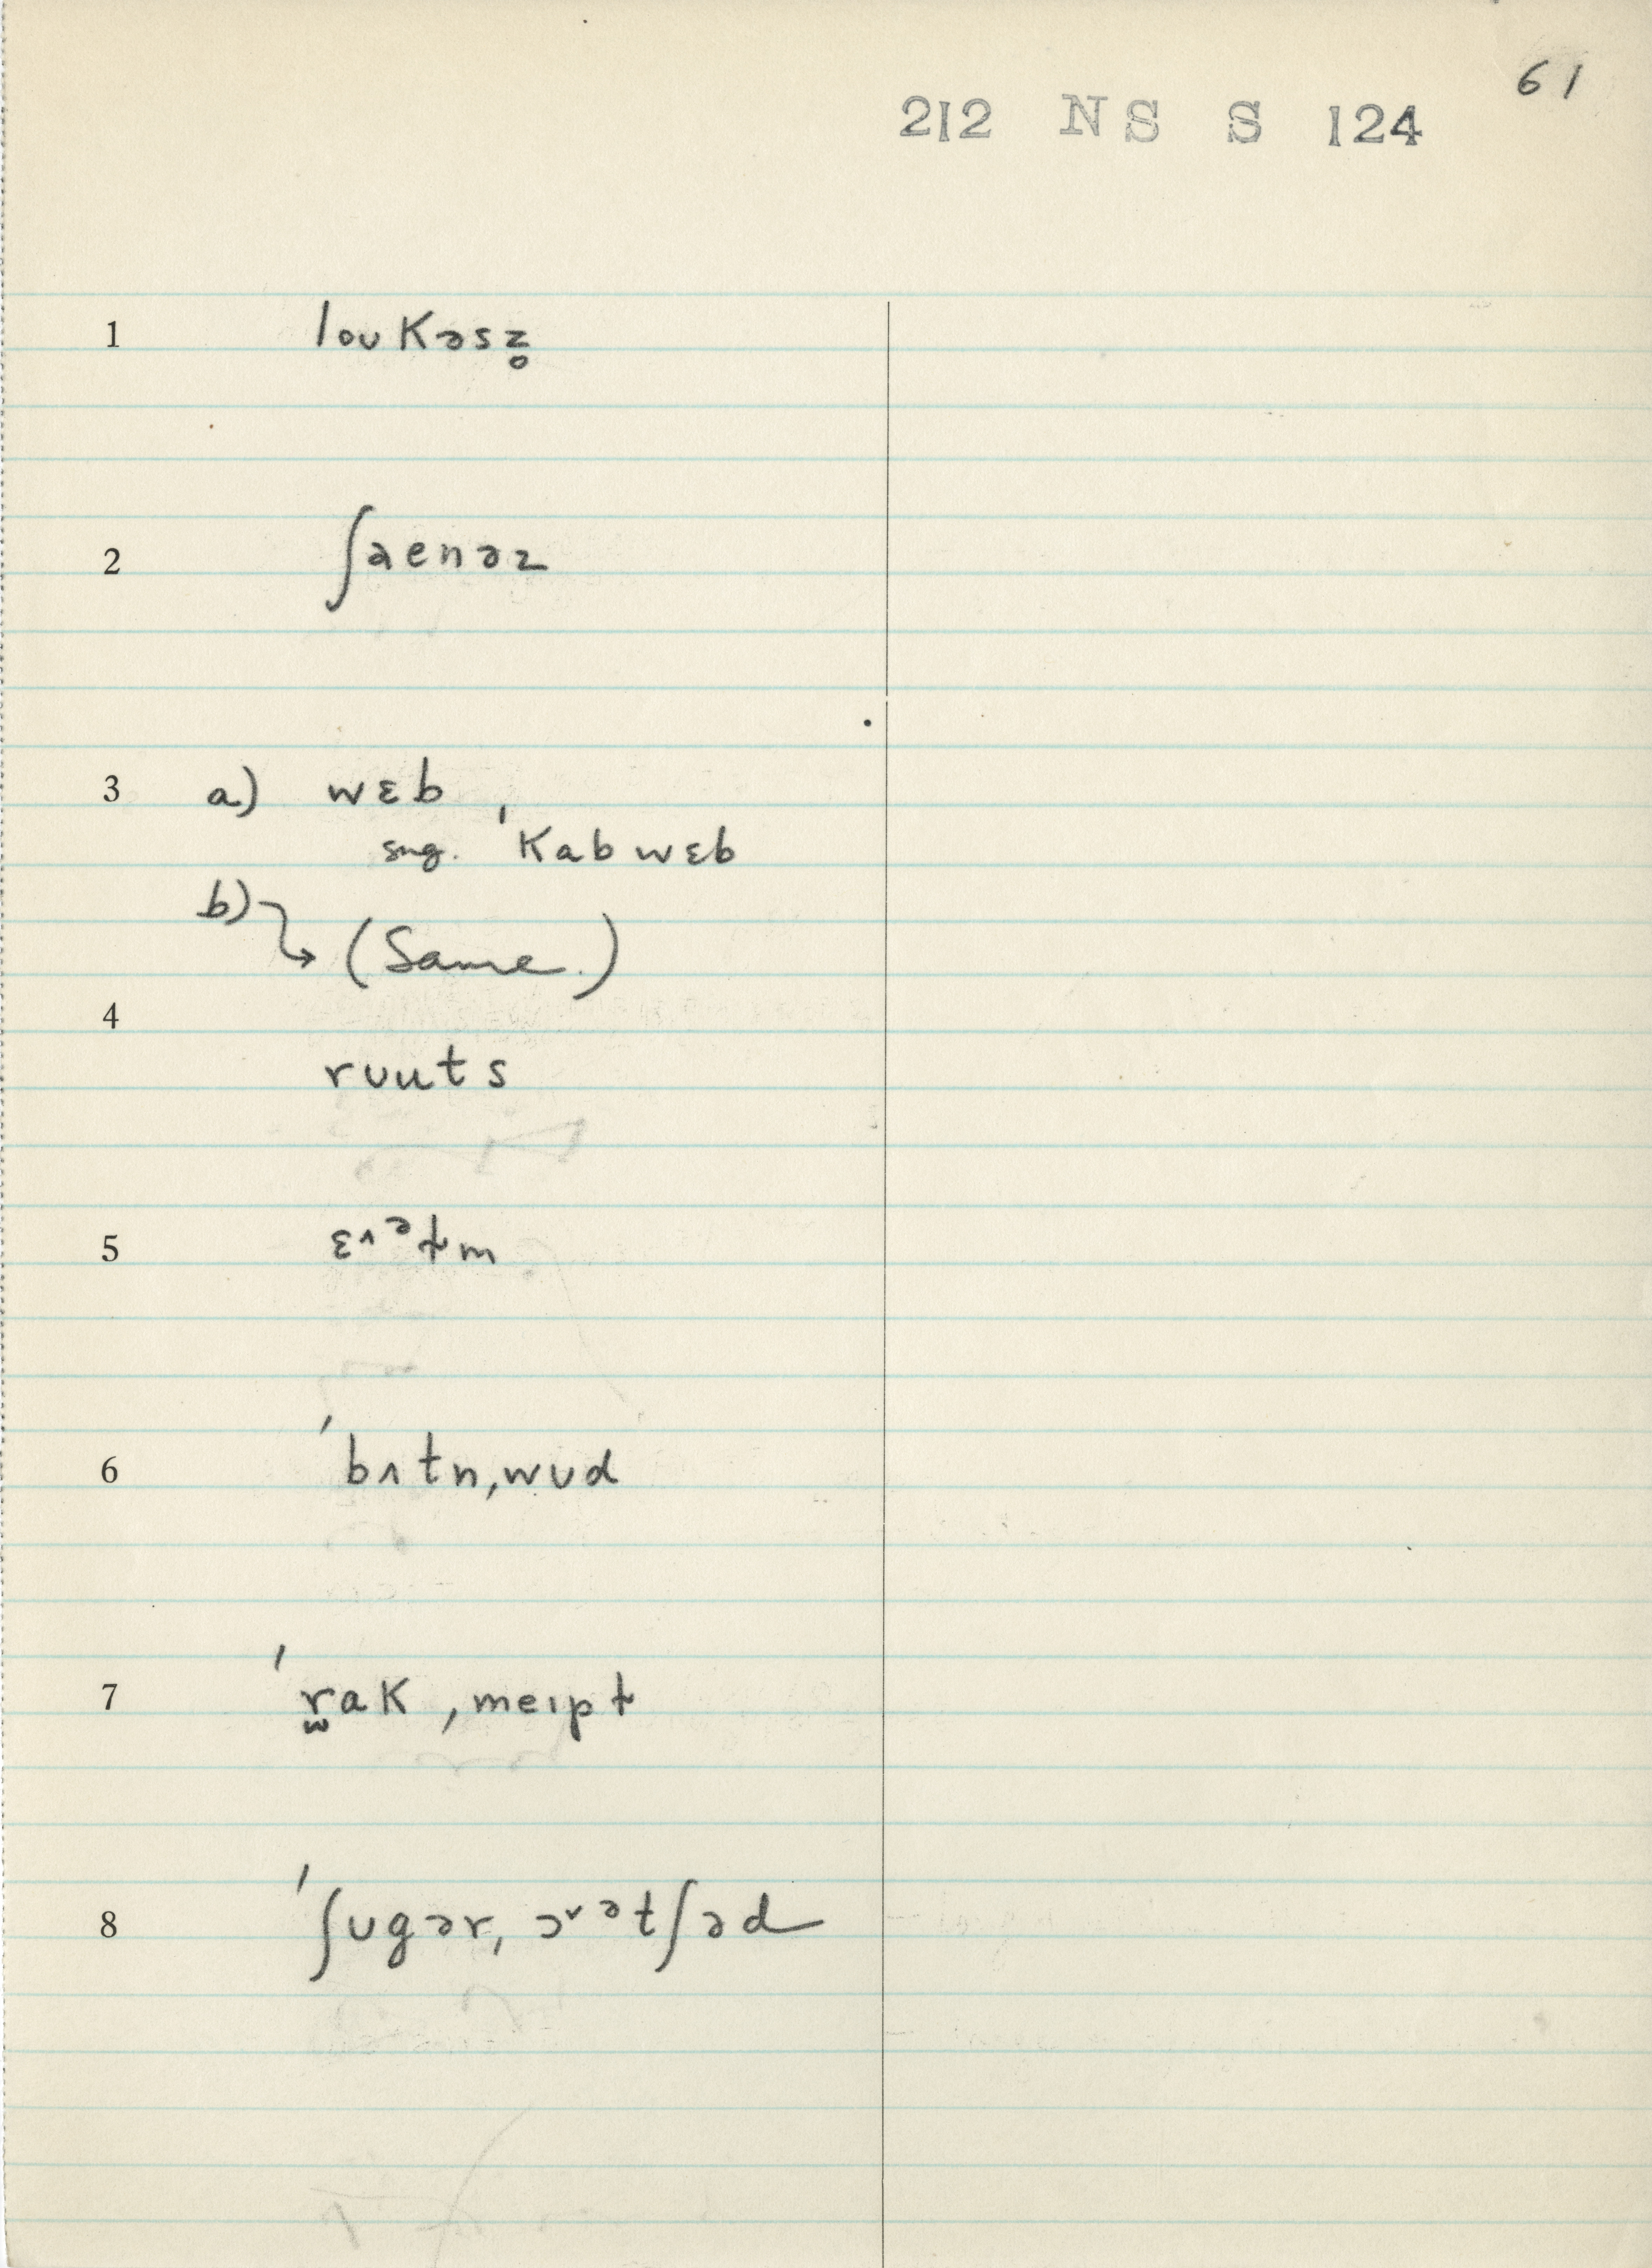 61
212 NS S 124
1 loʊkəsz̥
2 ʃaenəz
3 a) wɛb,
sug. ˈkabwɛb
b) (Same.)
4
rʊuts
5 ɛ^ᵊt̬m
6 ˈbɪtn,wʊd
7 ˈr̫ak,meɪpɫ
8 ˈʃʊgər,ɔˇᵊtʃəd